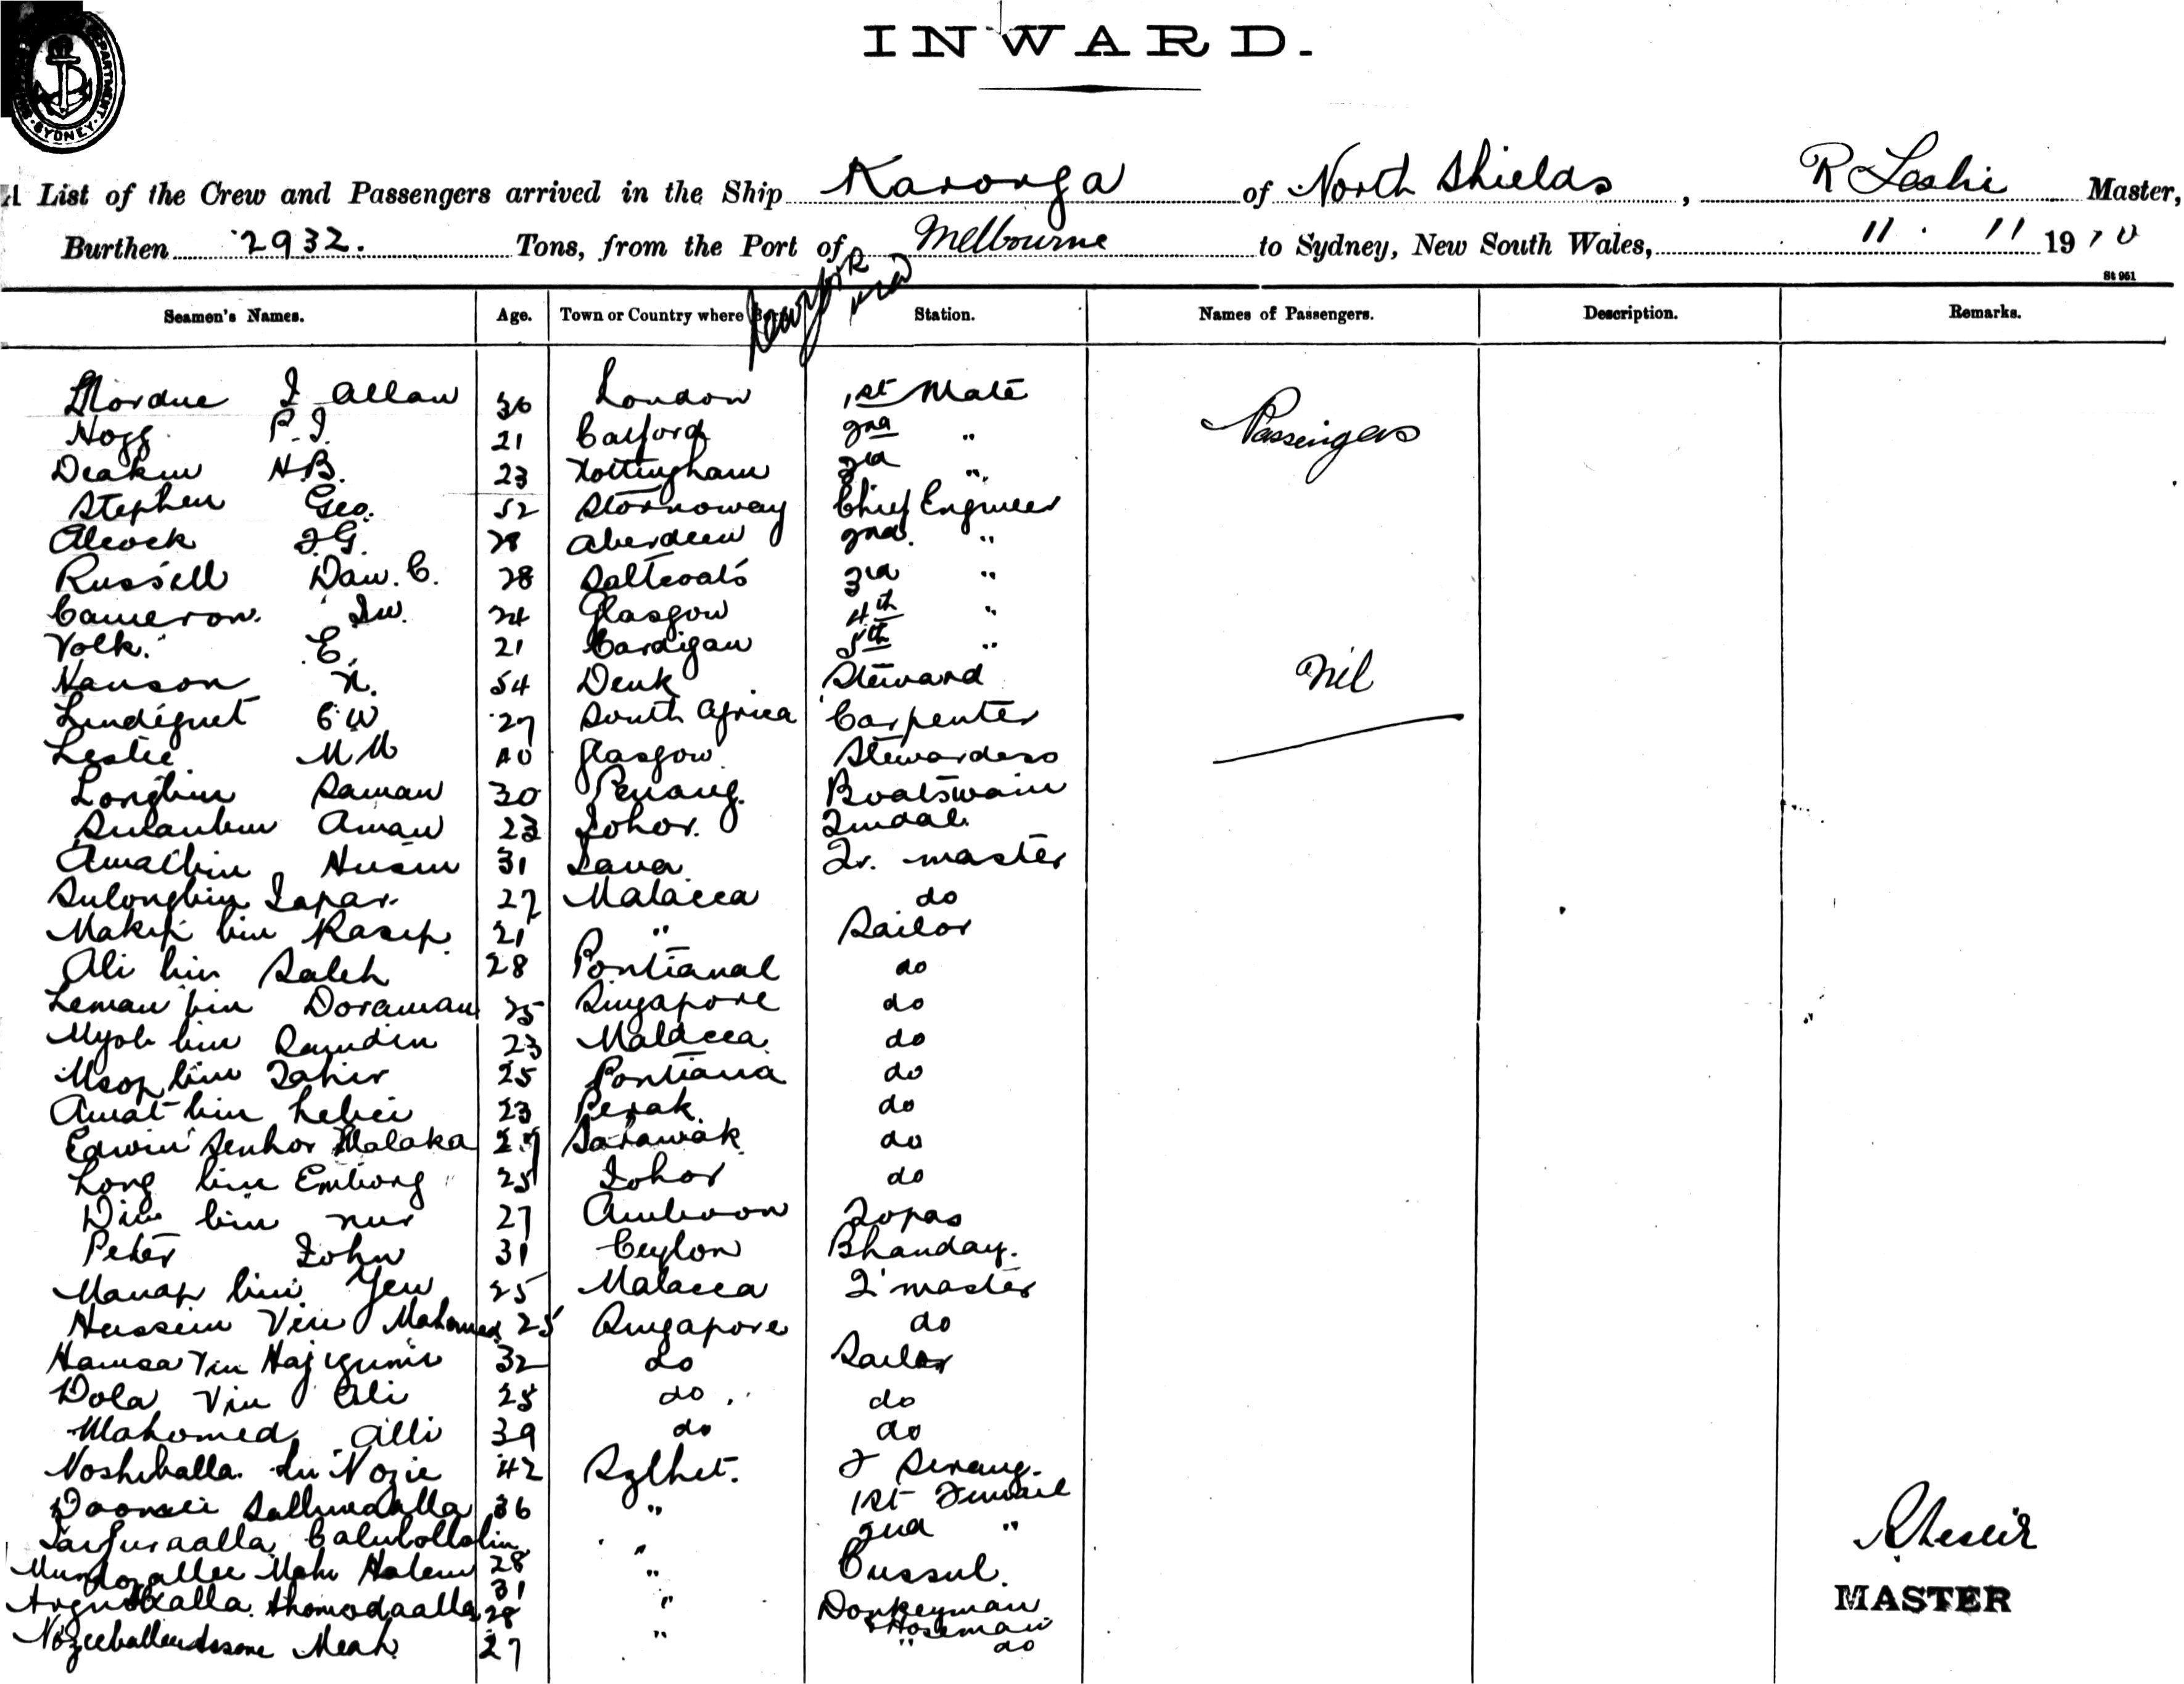 INWARD.
SYDNEY
A List of the Crew and Passengers arrived in the Ship Karonga of North Shields, R Leslie Master,
Burthen 2932. Tons, from the Port of Melbourne to Sydney, New South Wales, 11 . 11 1910
New York via
St 961
Seamen's Names. Age. Town or Country where Station. Names of Passengers. Description. Remarks.
Mordue J Allan 36 London 1st Mate
Hogg P.J. 21 Catford 2nd " Passengers
Deakin H.B. 23 Nottingham 3rd "
Stephen Geo. 52 Stornoway Chief Engineer
Alcock J.G. 28 Aberdeen 2nd. "
Russell Daw. C. 28 Saltcoats 3rd "
Cameron. 24 Glasgow 4th "
Volk. E. 21 Cardigan 5th "
Hanson N. 54 Denk Steward Nil
Lindequet C W 27 South Africa Carpenter
Leslie M M 40 Glasgow Stewardess
Longbin Saman 30 Penang. Boatswain
Aman 23 Johor. Tindal.
Amatbin Husin 31 Java Qr. master
Sulongbin Japar 27 Malacca do
Makip bin Kasip 21 " Sailor
Ali bin Saleh 28 Pontianal do
Leman bin Doraman 25 Singapore do
Myob bin Ramdin 23 Malacca. do
Msop bin Tahir 25 Pontiana do
Amat bin Lebei 23 Perak. do
Edwin Senhor Malaka 27 Sarawak do
Long bin Embong 25 Johor do
Din bin nur 27 Amboon Topas
Peter John 31 Ceylon Bhanday.
Manap bin Yen 25 Malacca Q' master
Hussein Vin Mahomed 25 Singapore do
Hamsa Vin 32 do Sailor
Dola Vin Ali 25 do do
Mahomed Alli 39 do do
Noshiballa Nozie 42 Sylhet. Serang.
36 " 1st Tindail
" 2nd "
28 " Cussul.
31
28 " Donkeyman
Hoseman
Meah 27 " " do
R Leslie
MASTER